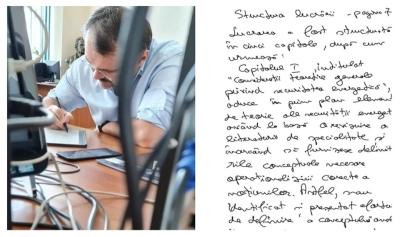 Structura lucrării - pagina 7
Lucrarea a fost structurată
în cinci capitole, după cum
urmează:
Capitolul I, intitulat
"Considerații teoretice generale
privind securitatea energetică",
aduce în prim plan elemente
de teorie ale securității energet
având la bază o revizuire a
literaturii de specialitate și
încercând să furnizeze delimit
ările conceptuale necesare
operaționalizării corecte a
noțiunilor. Astfel, s-au
identificat și prezentat eforturi
de definire a conceptului